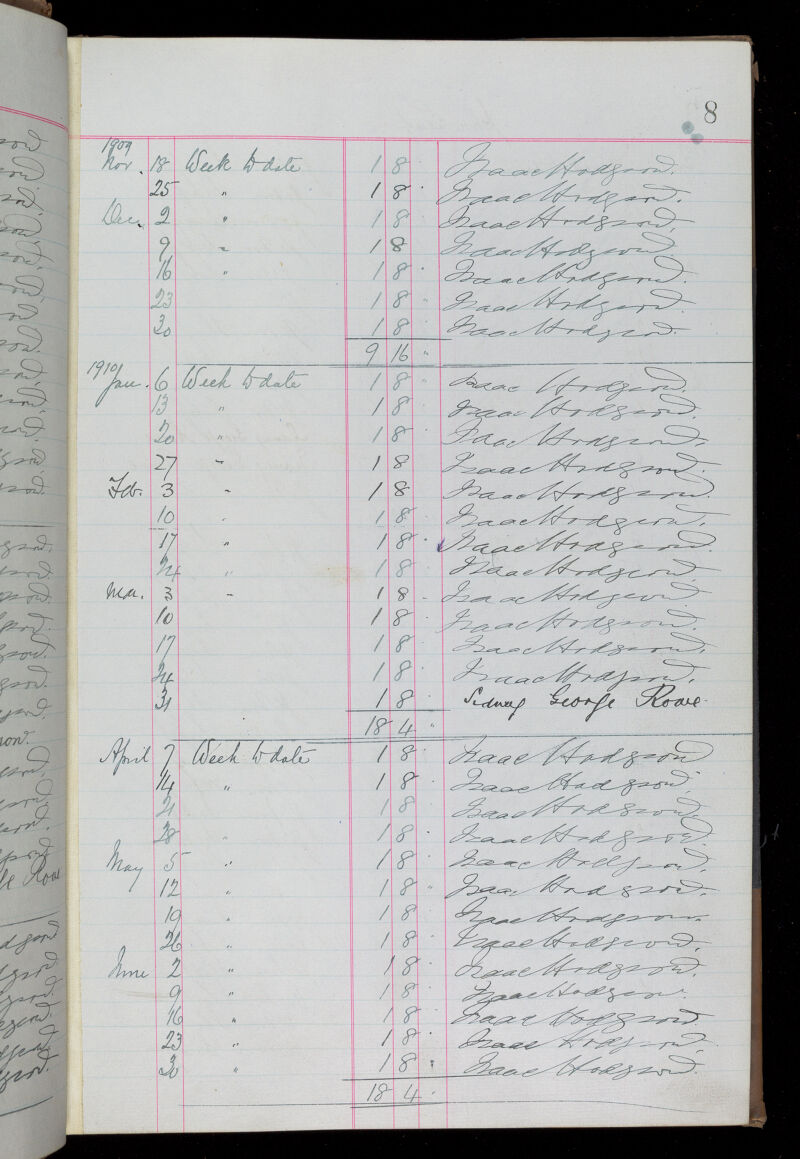 8
1909
Nov. 18 Week to date 1 8 " Isaac Hodgson.
25 " 1 8 " Isaac Hodgson.
Dec. 2 " 1 8 Isaac Hodgson.
9 " 1 8 Isaac Hodgson
16 " 1 8 " Isaac Hodgson.
23 1 8 " Isaac Hodgson.
30 1 8 Isaac Hodgson.
9 16 "
1910
Jan. 6 Week to date 1 8 " Isaac Hodgson.
13 " 1 8 Isaac Hodgson.
20 " 1 8 Isaac Hodgson.
27 " 1 8 Isaac Hodgson.
Feb. 3 " 1 8 Isaac Hodgson.
10 " 1 8 Isaac Hodgson.
17 " 1 8 " Isaac Hodgson.
24 " 1 8 Isaac Hodgson.
Mar. 3 " 1 8 " Isaac Hodgson.
10 1 8 " Isaac Hodgson.
17 1 8 Isaac Hodgson.
24 1 8 Isaac Hodgson.
31 1 8 Sidney George Rowe.
18 4 "
April 7 Week to date 1 8 " Isaac Hodgson
14 " 1 8 " Isaac Hodgson.
21 1 8 Isaac Hodgson.
28 " 1 8 " Isaac Hodgson.
May 5 " 1 8 " Isaac Hodgson.
12 " 1 8 " Isaac Hodgson.
19 " 1 8 Isaac Hodgson.
26 " 1 8 " Isaac Hodgson.
June 2 " 1 8 " Isaac Hodgson.
9 " 1 8 Isaac Hodgson
16 " 1 8 " Isaac Hodgson
23 " 1 8 " Isaac Hodgson.
30 " 1 8 " Isaac Hodgson.
18 4 "